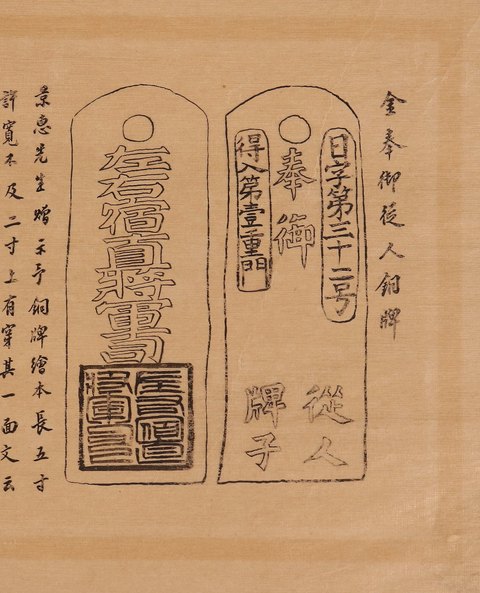 金奉御從人銅牌
日字第三十二号
奉御
得入第壹重門
從人
牌子
左右宿直將軍司
景惠先生贈示予銅牌繪本長五寸
許寬不及二寸上有穿其一面文云